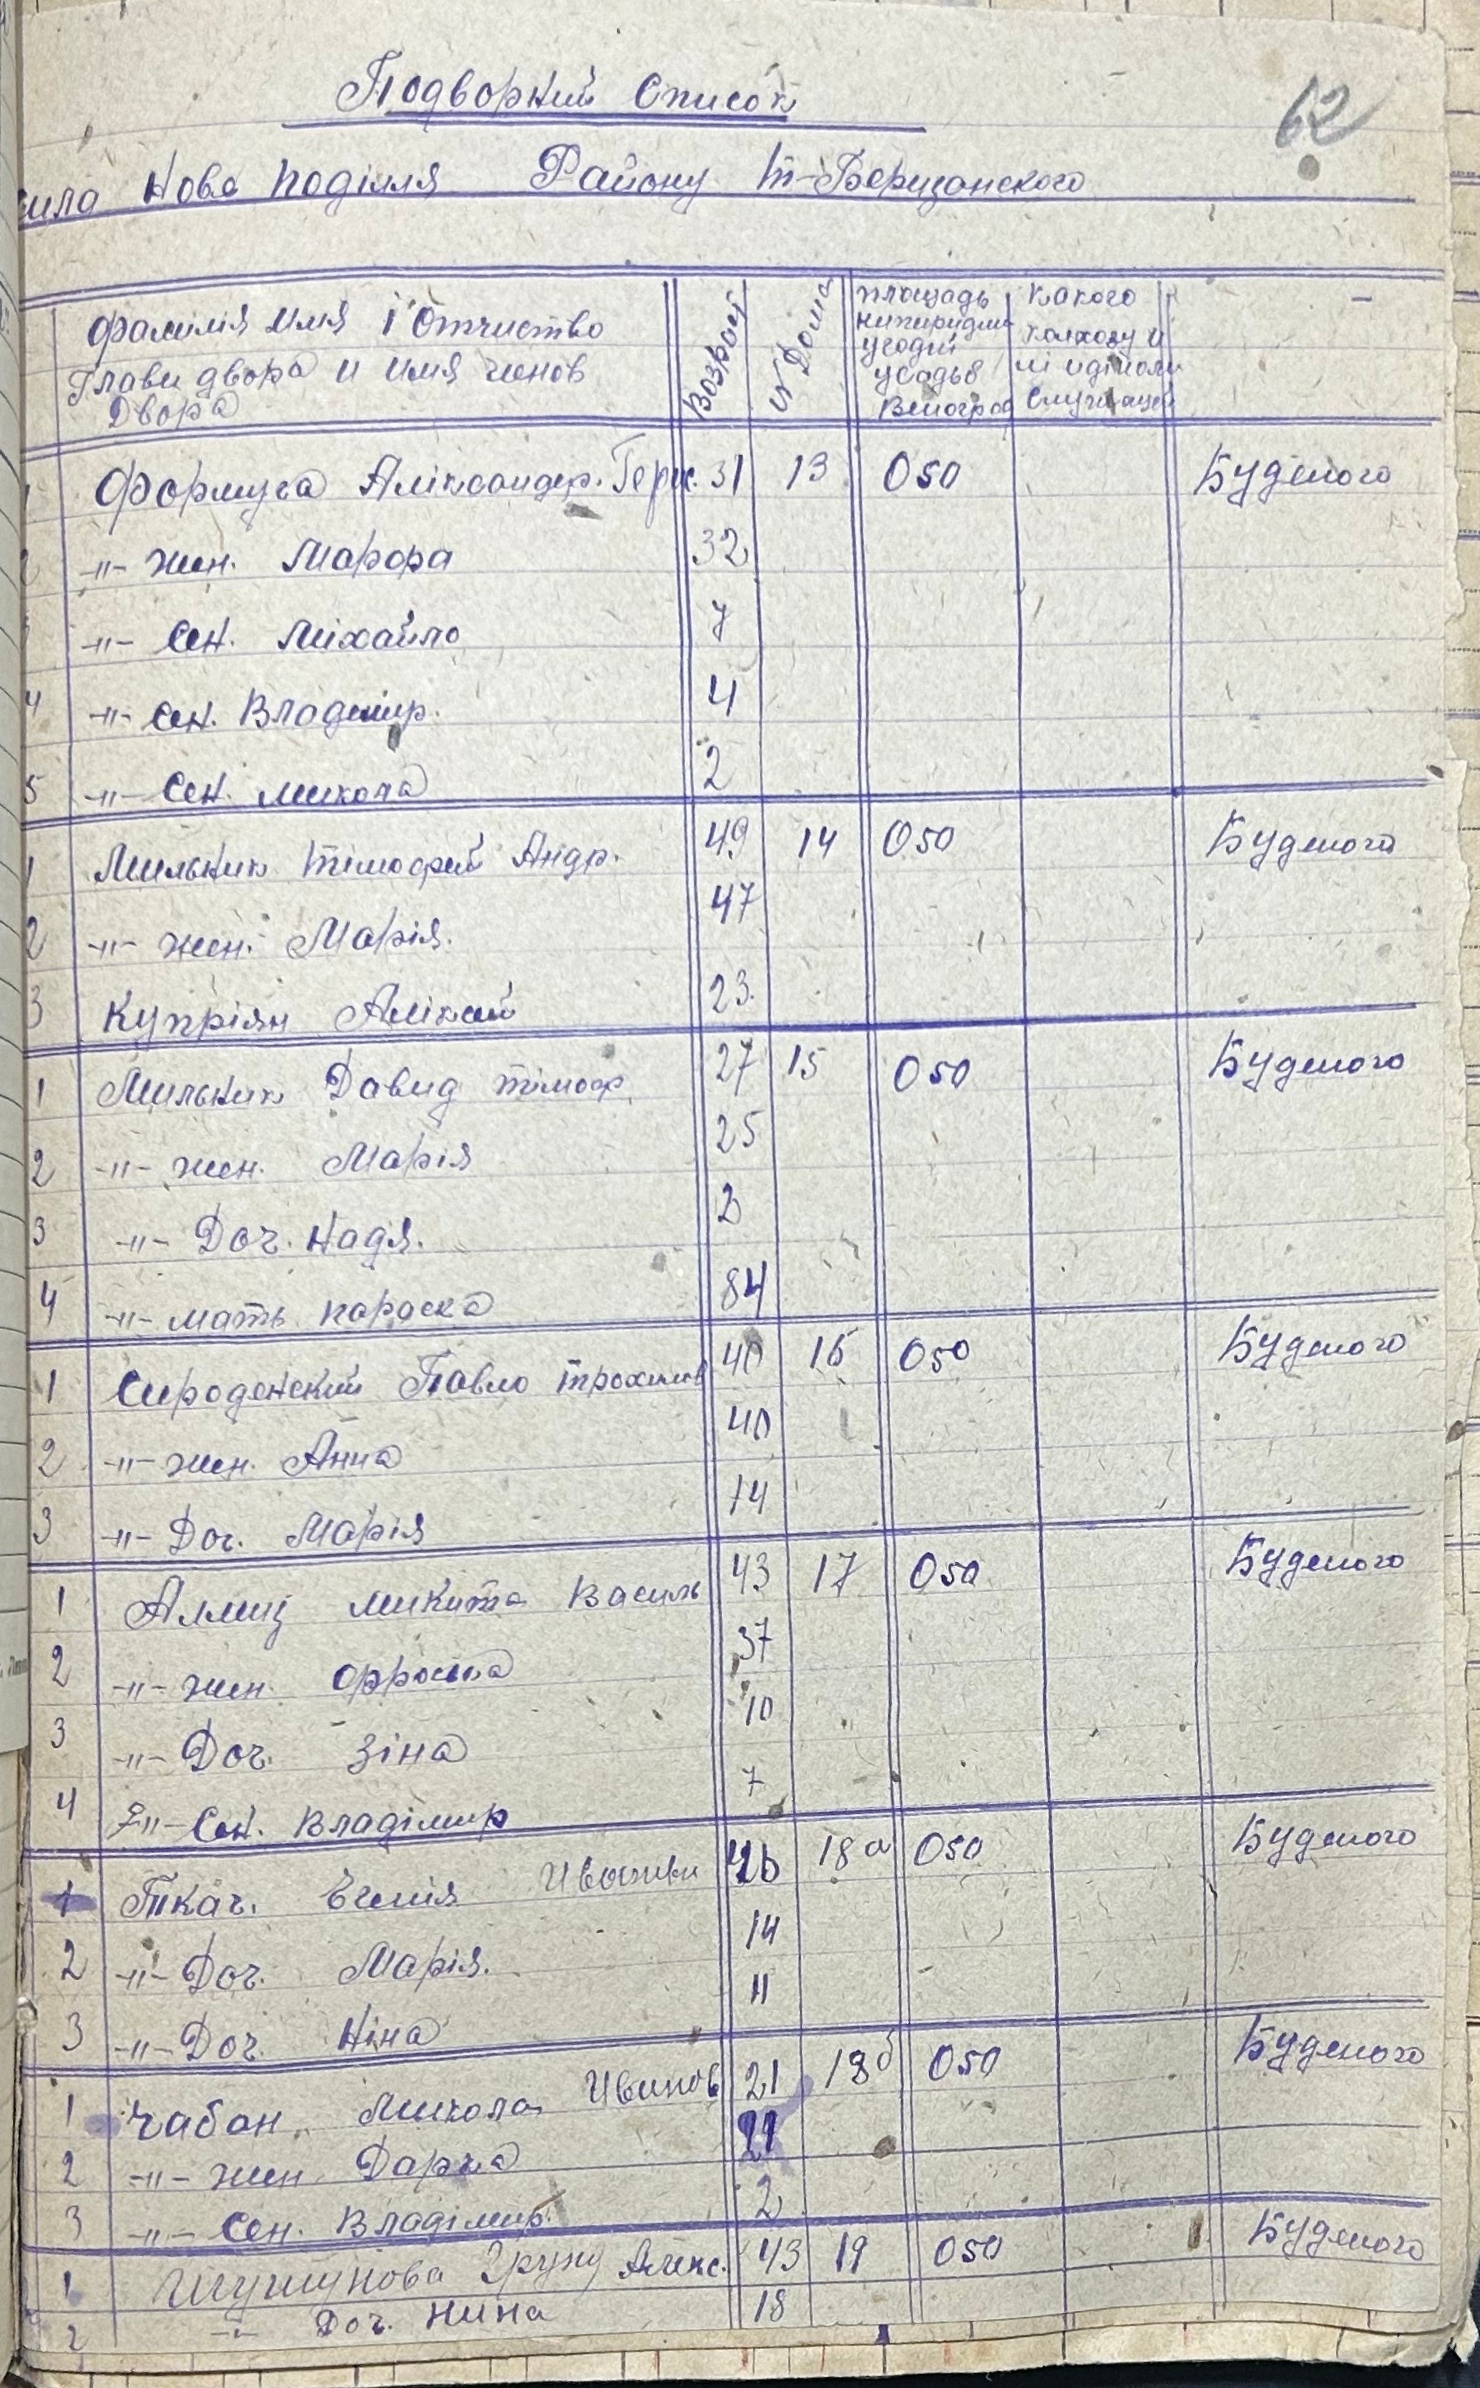 Подворний список
62
сила Нова поділля Району т-Березанского
фамилія имя і отчиство
Глави двора и имя членов
Двора
Возраст
№ Дома
площадь
угодій
усадьб
Виноград
какого
1 Формуга Аліксандер. Герас. 31 13 050 Буденого
2 -"- жен. Марфра 32
3 -"- сен. Міхайло 7
4 -"- сен. Владемир. 4
5 -"- сен. микола 2
1 Мильник тімофей Андр. 49 14 050 Буденого
2 -"- жен. Марія. 47
3 Купріян Аліксей 23.
1 Мильник Давид тімоф. 27 15 050 Буденого
2 -"- жен. Марія 25
3 -"- Доч. Надя. 2
4 -"- мать параска 84
1 Сироденский Павло трохимов 40 16 050 Буденого
2 -"- жен. Анна 40
3 -"- Доч. Марія 14
1 микита Василь 43 17 050 Буденого
2 -"- жен. 37
3 -"- Доч. Зіна 10
4 -"- Сен. Владімир 7
1 Ткач. Евгенія 18а 050 Буденого
2 -"- Доч. Марія. 14
3 -"- Доч. Ніна 11
1 Чабан. Микола Иванов 21 18б 050 Буденого
2 -"- жен Дарка 21
3 -"- Сен. Владімир. 2
1 Шушунова Груну Алекс. 43 19 050 Буденого
2 -"- Доч. Нина 18